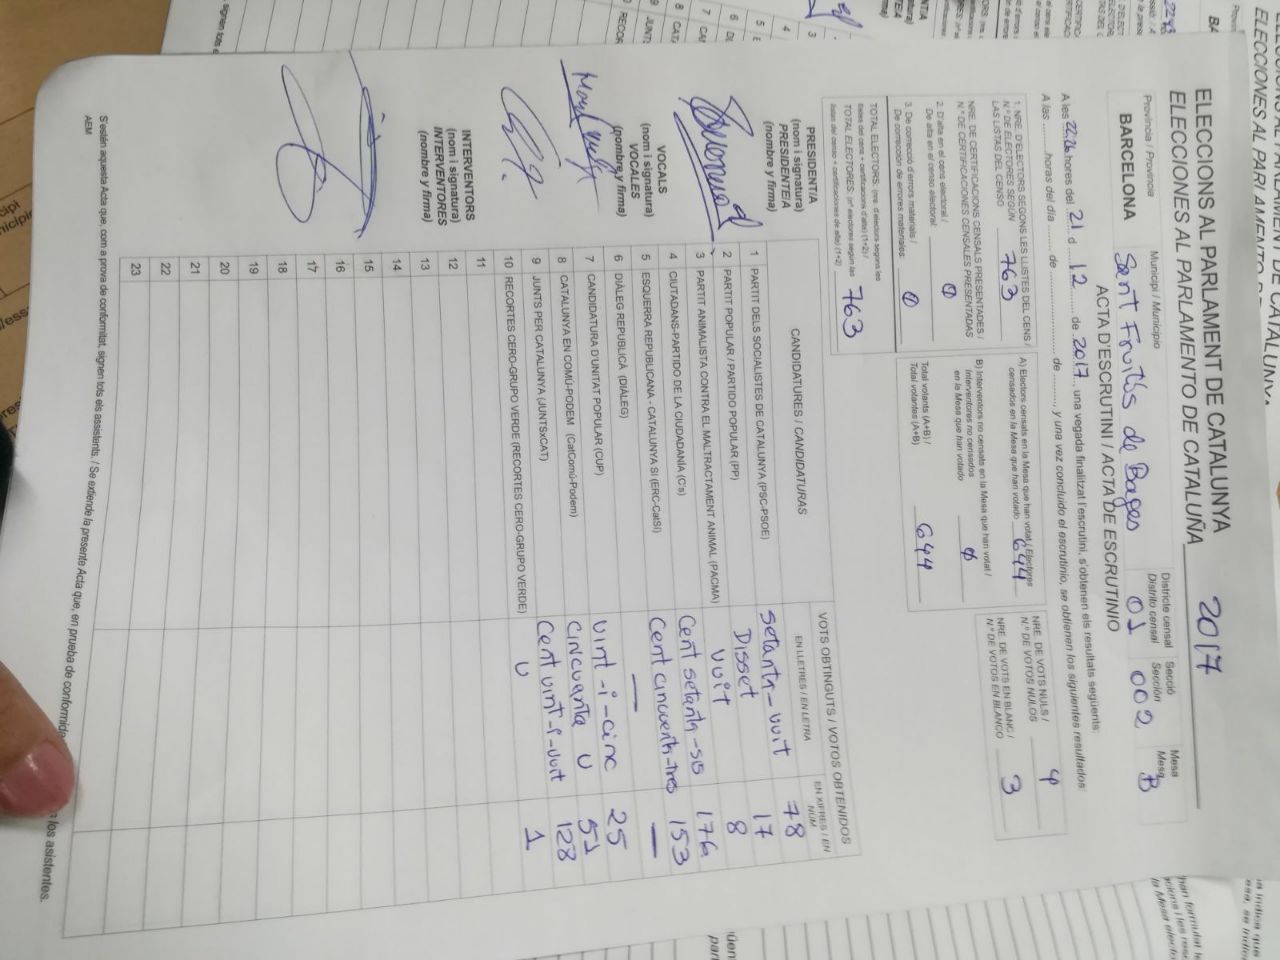 ELECCIONS AL PARLAMENT DE CATALUNYA
ELECCIONES AL PARLAMENTO DE CATALUÑA 2017
Província / Provincia
BARCELONA
Municipi / Municipio
Sant Fruitós de Bages
Districte censal
Distrito censal
01
Secció
Sección
002
Mesa
Mesa
B
ACTA D'ESCRUTINI / ACTA DE ESCRUTINIO
A les 22:26 hores del 21 d 12 de 2017, una vegada finalitzat l'escrutini, s'obtenen els resultats següents:
A las horas del día de de , y una vez concluido el escrutinio, se obtienen los siguientes resultados:
1. NRE. D'ELECTORS SEGONS LES LLISTES DEL CENS /
N.º DE ELECTORES SEGÚN
LAS LISTAS DEL CENSO 763
NRE. DE CERTIFICACIONS CENSALS PRESENTADES /
N.º DE CERTIFICACIONES CENSALES PRESENTADAS
2. D'alta en el cens electoral /
De alta en el censo electoral: 0
3. De correcció d'errors materials /
De corrección de errores materiales: 0
TOTAL ELECTORS: (nre. d'electors segons les
llistes del cens + certificacions d'alta) (1+2) /
TOTAL ELECTORES: (nº electores según las
listas del censo + certificaciones de alta) (1+2) 763
A) Electors censats en la Mesa que han votat / Electores
censados en la Mesa que han votado 644
B) Interventors no censats en la Mesa que han votat /
Interventores no censados
en la Mesa que han votado 0
Total votants (A+B) /
Total votantes (A+B) 644
NRE. DE VOTS NULS /
N.º DE VOTOS NULOS 4
NRE. DE VOTS EN BLANC /
N.º DE VOTOS EN BLANCO 3
PRESIDENT/A
(nom i signatura)
PRESIDENTE/A
(nombre y firma)
VOCALS
(nom i signatura)
VOCALES
(nombre y firma)
INTERVENTORS
(nom i signatura)
INTERVENTORES
(nombre y firma)
CANDIDATURES / CANDIDATURAS
VOTS OBTINGUTS / VOTOS OBTENIDOS
EN LLETRES / EN LETRA
EN XIFRES / EN NÚM
1 PARTIT DELS SOCIALISTES DE CATALUNYA (PSC-PSOE) setanta-vuit 78
2 PARTIT POPULAR / PARTIDO POPULAR (PP) Disset 17
3 PARTIT ANIMALISTA CONTRA EL MALTRACTAMENT ANIMAL (PACMA) vuit 8
4 CIUTADANS-PARTIDO DE LA CIUDADANÍA (C's) Cent setanta-sis 176
5 ESQUERRA REPUBLICANA - CATALUNYA SÍ (ERC-CatSí) Cent cincuenta-tres 153
6 DIÀLEG REPUBLICÀ (DIÀLEG) — —
7 CANDIDATURA D'UNITAT POPULAR (CUP) vint-i-cinc 25
8 CATALUNYA EN COMÚ-PODEM (CatComú-Podem) cincuanta u 51
9 JUNTS PER CATALUNYA (JUNTSxCAT) Cent vint-i-vuit 128
10 RECORTES CERO-GRUPO VERDE (RECORTES CERO-GRUPO VERDE) u 1
11
12
13
14
15
16
17
18
19
20
21
22
23
S'estén aquesta Acta que, com a prova de conformitat, signen tots els assistents. / Se extiende la presente Acta que, en prueba de conformidad los asistentes.
AEM